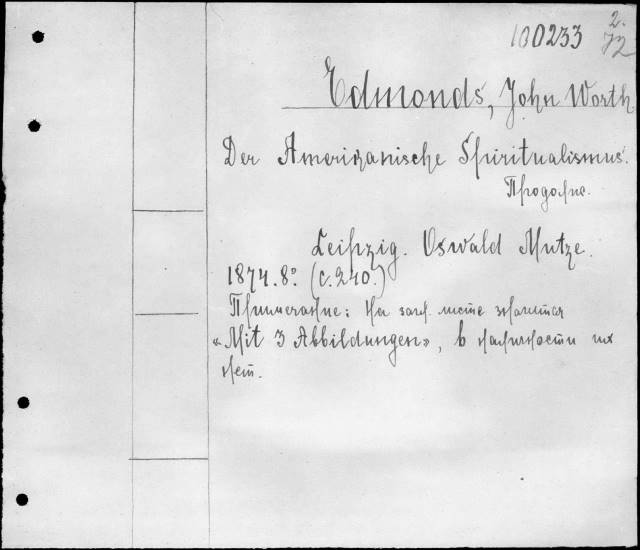 100233 2.
72
Edmonds, John Worth
Der Amerikanische Spiritualismus.
Продолже.
Leipzig. Oswald Mutze.
1874. 8º (с. 240.)
Примечание: На загл. листе значится
«Mit 3 Abbildungen», в наличности их
нет.